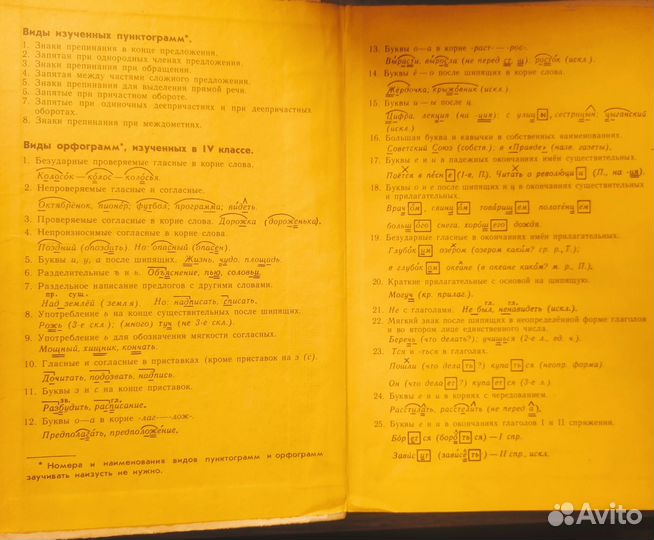 Виды изученных пунктограмм*.
1. Знаки препинания в конце предложения.
2. Запятая при однородных членах предложения.
3. Знаки препинания при обращении.
4. Запятая между частями сложного предложения.
5. Знаки препинания для выделения прямой речи.
6. Запятые при причастном обороте.
7. Запятые при одиночных деепричастиях и при деепричастных
оборотах.
8. Знаки препинания при междометиях.
Виды орфограмм*, изученных в IV классе.
1. Безударные проверяемые гласные в корне слова.
Колосок — колос — колосья.
2. Непроверяемые гласные и согласные.
Октябрёнок, пионер; футбол; программа; видеть.
3. Проверяемые согласные в корне слова. Дорожка (дороженька).
4. Непроизносимые согласные в корне слова.
Поздний (опоздать). Но: опасный (опасен).
5. Буквы и, у, а после шипящих. Жизнь, чудо, площадь.
6. Разделительные ъ и ь. Объяснение, пью, соловьи.
7. Раздельное написание предлогов с другими словами.
пр. сущ.
Над землёй (земля). Но: надписать, списать.
8. Употребление ь на конце существительных после шипящих.
Рожь (3-е скл.); (много) туч (не 3-е скл.).
9. Употребление ь для обозначения мягкости согласных.
Мощный, хищник, кончать.
10. Гласные и согласные в приставках (кроме приставок на з (с).
Дочитать, подозвать, надпись.
11. Буквы з и с на конце приставок.
зв. гл.
Разбудить, расписание.
12. Буквы о—а в корне -лаг- — -лож-.
Предполагать, предложение.
* Номера и наименования видов пунктограмм и орфограмм
заучивать наизусть не нужно.
13. Буквы о—а в корне -раст- — -рос-.
Вырасти, выросла (не перед ст, щ). росток (искл.).
14. Буквы ё—о после шипящих в корне слова.
Жёрдочка; крыжовник (искл.).
15. Буквы и—ы после ц.
Цифра, лекция (на -ция): с улицы, сестрицын; цыганский
(искл.)
16. Большая буква и кавычки в собственных наименованиях.
Советский Союз (собств.); в «Правде» (назв. газеты).
17. Буквы е и и в падежных окончаниях имён существительных.
Поётся в песне (1-е, П.). Читать о революции (П., на -ия).
18. Буквы о и е после шипящих и ц в окончаниях существительных
и прилагательных.
Врачом, свинцом товарищем, полотенцем
большого снега. хорошего дождя.
19. Безударные гласные в окончаниях имён прилагательных.
Глубоким озером (озером каким? ср. р., Т.);
в глубоком океане (в океане каком? м. р., П.);
20. Краткие прилагательные с основой на шипящую.
Могуч (кр. прилаг.).
гл. гл.
21. Не с глаголами. Не был, ненавидеть (искл.).
22. Мягкий знак после шипящих в неопределённой форме глаголов
и во втором лице единственного числа.
Беречь (что делать?); учишься (2-е л., ед. ч.).
23. Тся и -ться в глаголах.
Пошли (что делать?) купаться (неопр. форма)
Он (что делает?) купается (3-е л.)
24. Буквы е и и в корнях с чередованием.
Расстилать, расстелить (не перед а).
25. Буквы е и и в окончаниях глаголов I и II спряжения.
Борется (бороться) — I спр.
Зависит (зависеть) — II спр., искл.
Avito